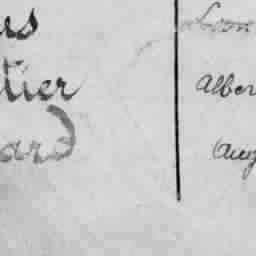 us
tier
ard
Lon
Alber
Aug